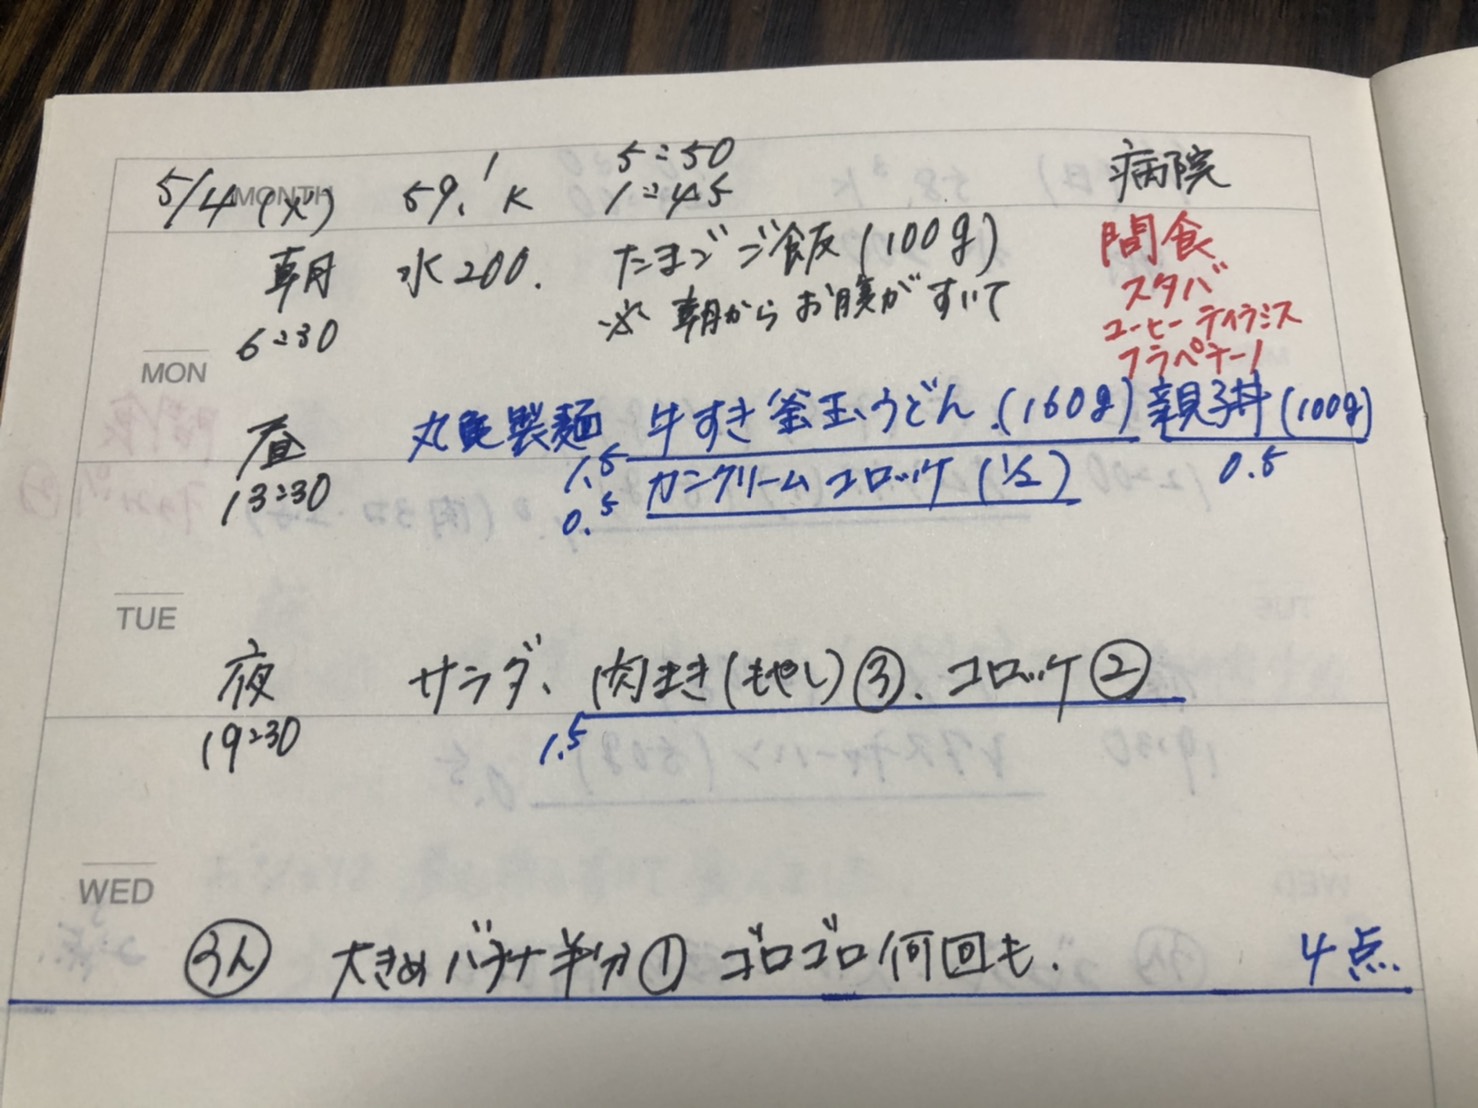 5:50
5/4 (火) 59.1K 1:45 病院
MONTH
朝 水200. たまごご飯(100g) 間食
6:30 ※朝からお腹がすいて スタバ
コーヒーティラミス
フラペチーノ
MON
昼 丸亀製麺 牛すき釜玉うどん.(160g) 親子丼(100g)
13:30 1.5 カニクリームコロッケ(1/2) 0.5
0.5
TUE
夜 サラダ、肉まき(もやし)③、コロッケ②
19:30 1.5
WED
うん 大きめバナナ半分① ゴロゴロ何回も. 4点.